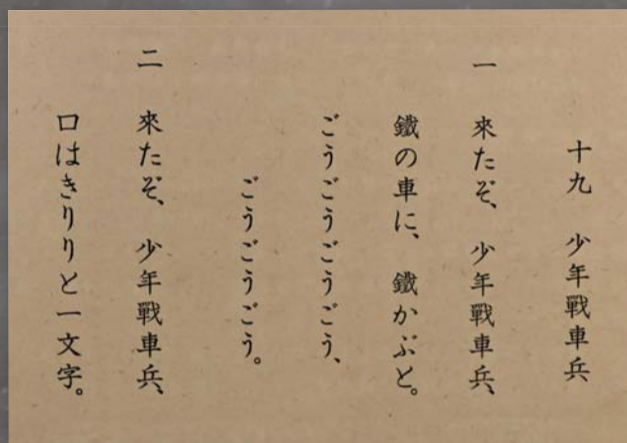 十九 少年戰車兵
一 來たぞ、少年戰車兵、
鐵の車に、鐵かぶと。
ごうごうごうごう、
ごうごうごう。
二 來たぞ、少年戰車兵、
口はきりりと一文字。